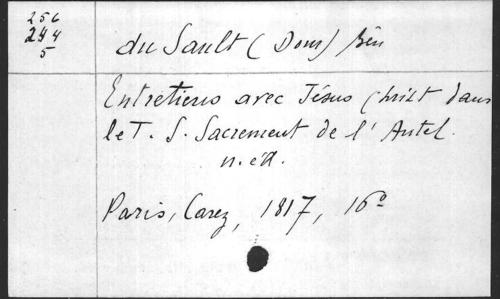 256
244
5
du Sault (Dom) bén
Entretiens avec Jésus Christ dans
le T. S. Sacrement de l'Autel.
n. éd.
Paris, Carez, 1817, 16º